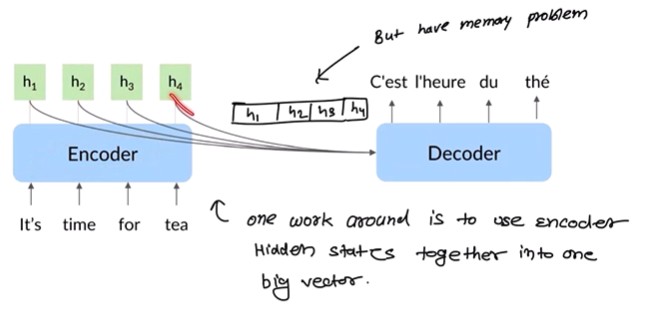 But have memory problem
h₁ h₂ h₃ h₄
h₁ h₂ h₃ h₄
C'est l'heure du thé
Encoder
Decoder
It's time for tea
one work around is to use encoder
Hidden states together into one
big vector.